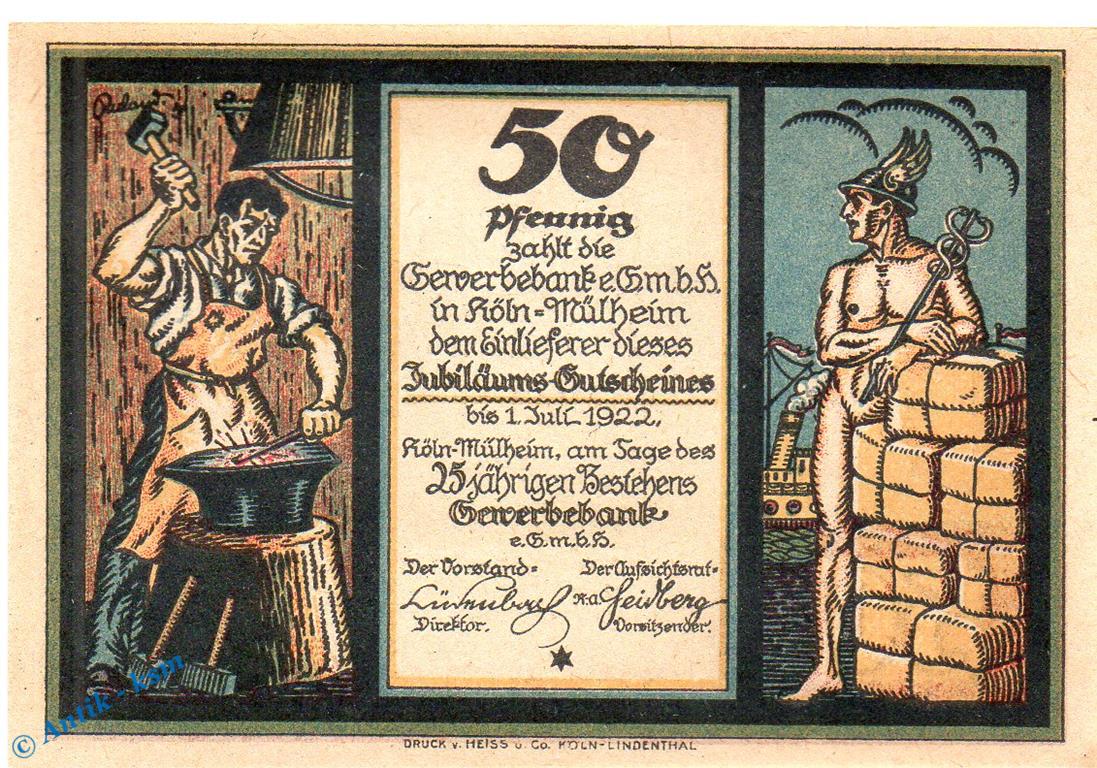 50
Pfennig
zahlt die
Gewerbebank e.G.m.b.H.
in Köln-Mülheim
dem Einlieferer dieses
Jubiläums-Gutscheines
bis 1. Juli 1922.
Köln-Mülheim, am Tage des
25jährigen Bestehens
Gewerbebank
e.G.m.b.H.
Der Vorstand- Der Aufsichtsrat-
R.A.
Direktor. Vorsitzender.
DRUCK v. HEISS u. Co. KÖLN-LINDENTHAL
© Antik - ksm